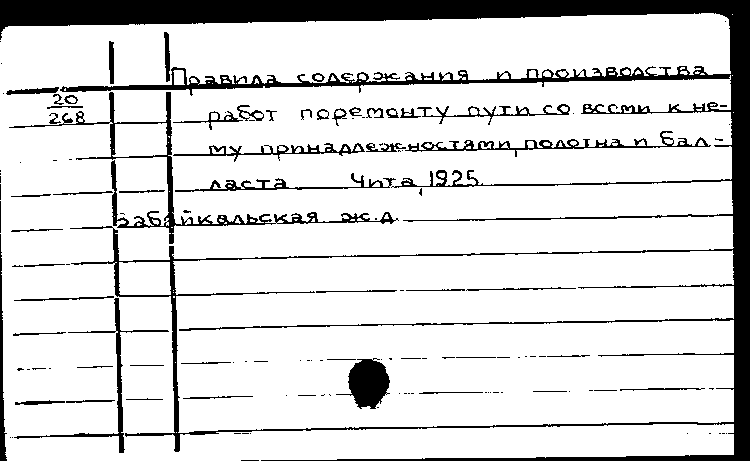 Правила содержания и производства
20
268
работ по ремонту пути со всеми к не-
му принадлежностями, полотна и бал-
ласта Чита, 1925
Забайкальская ж.д.